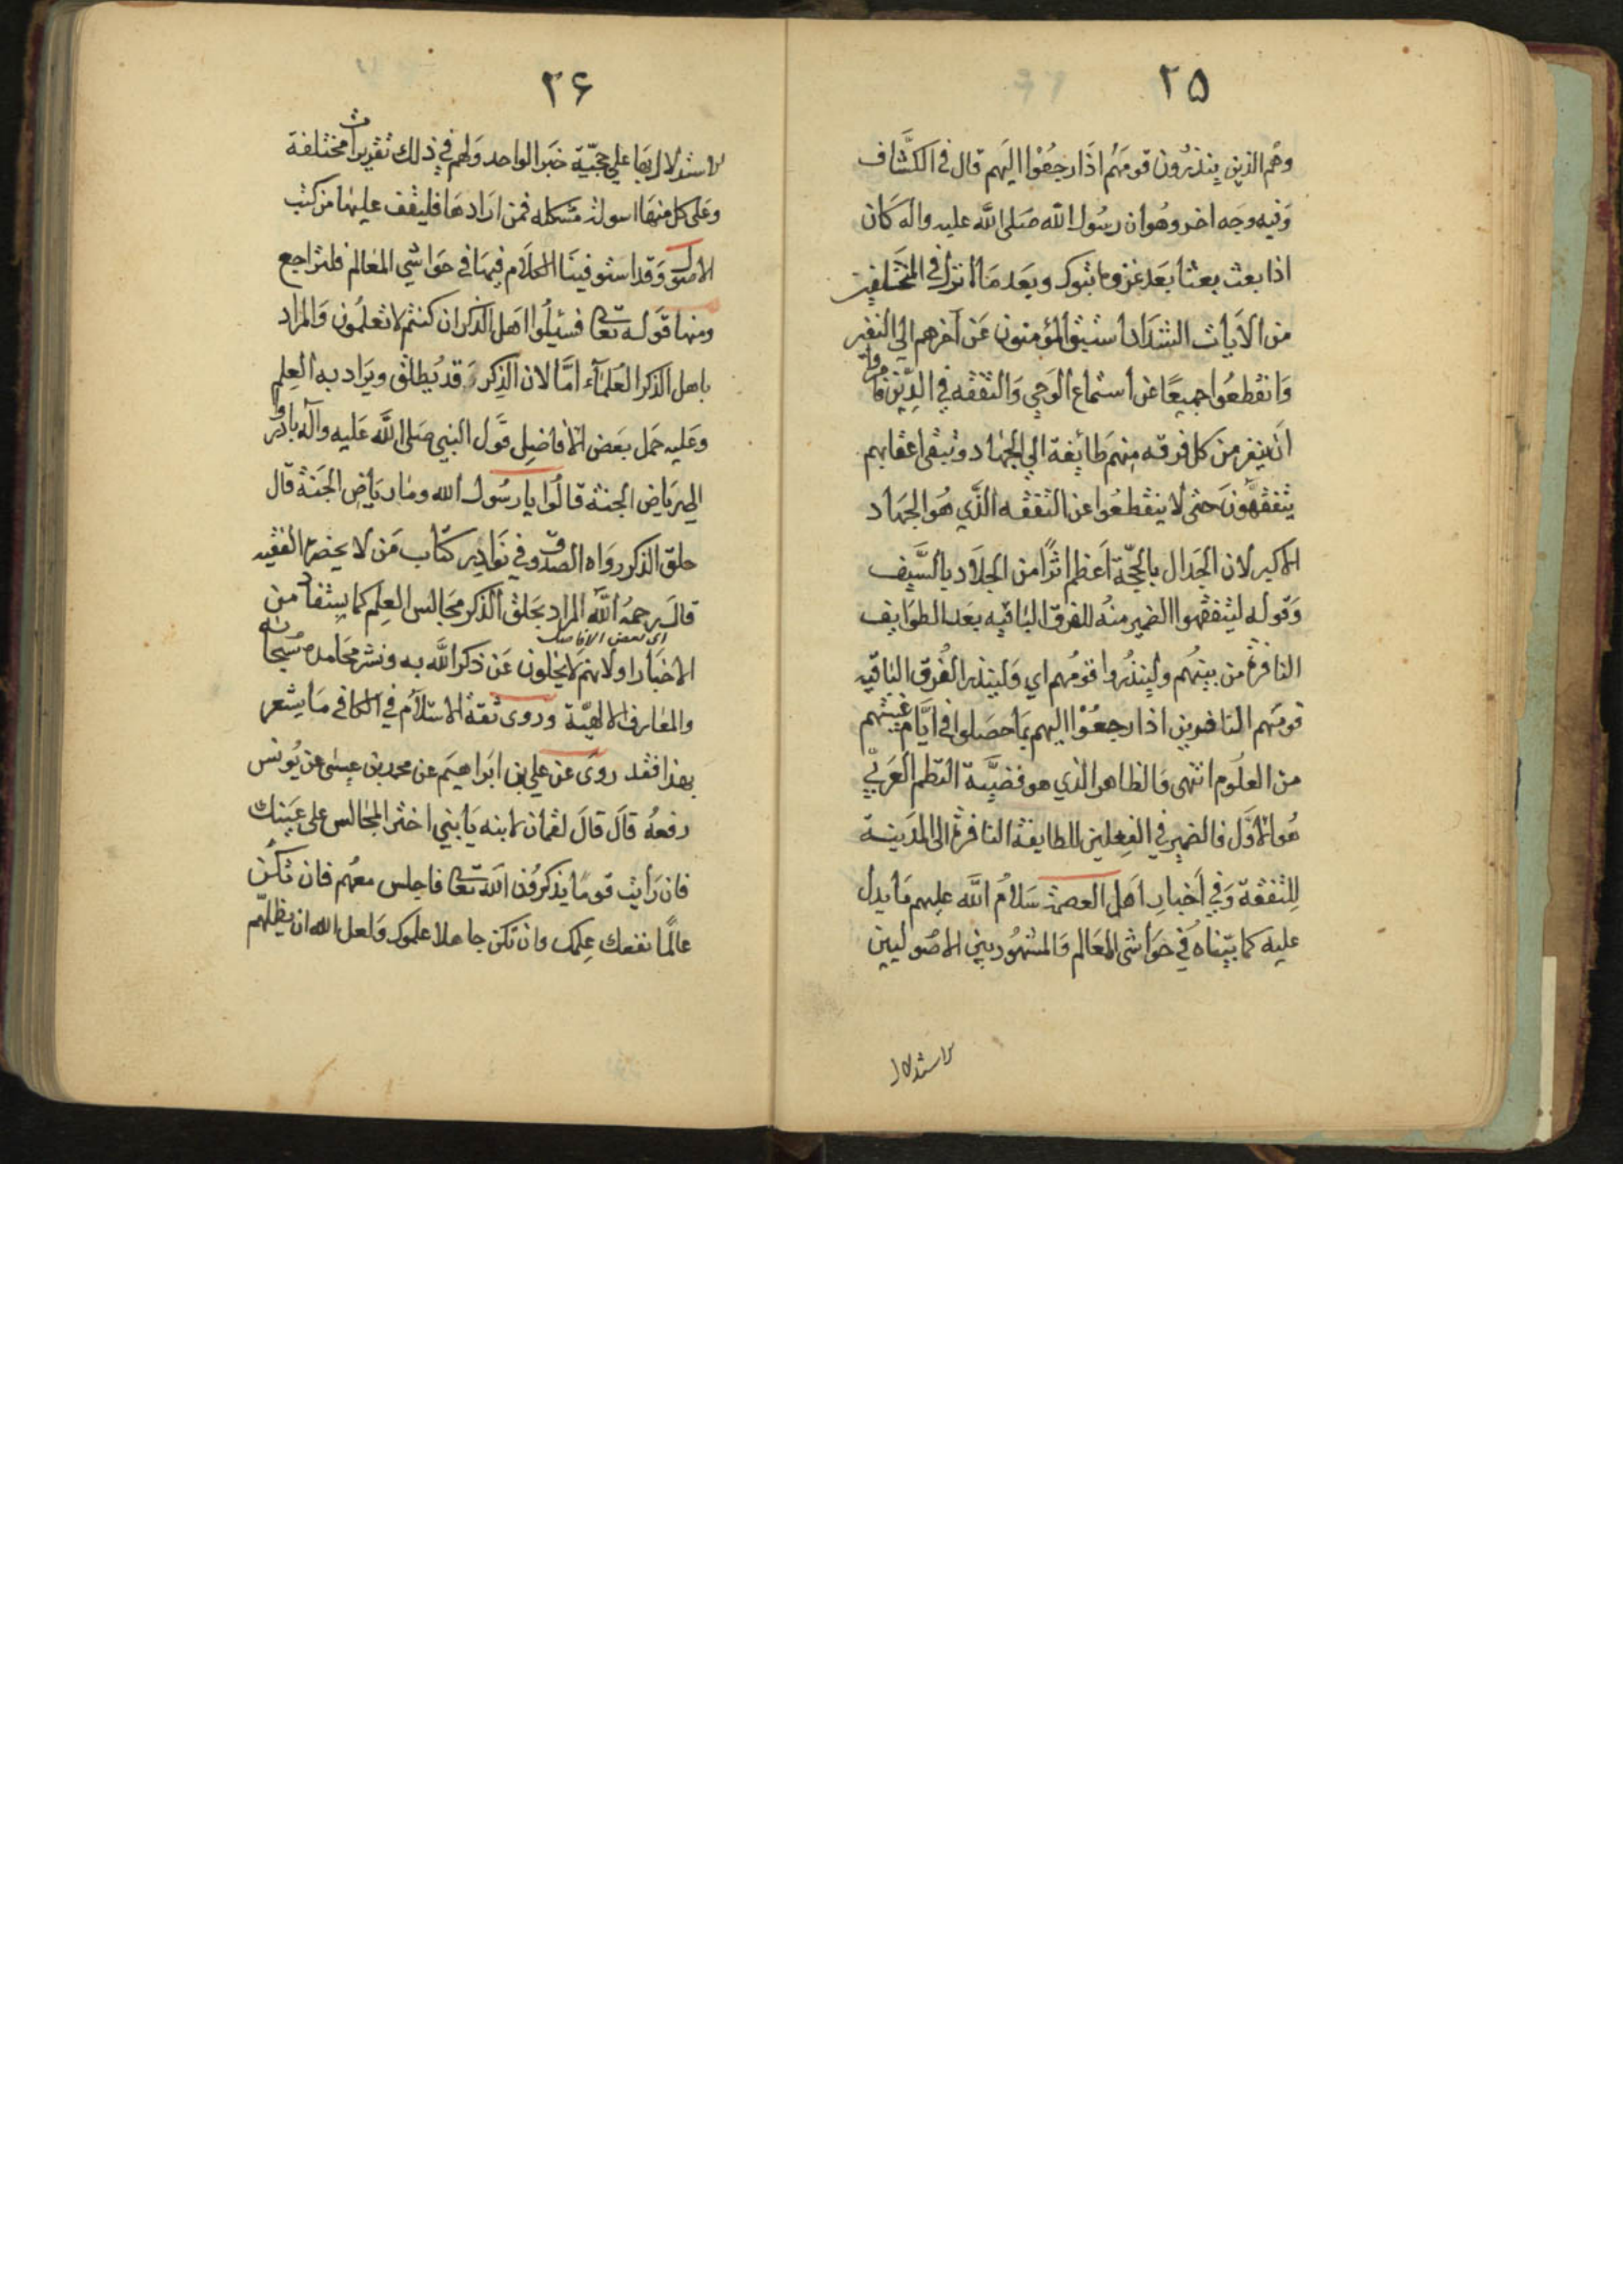 ٢٥
وهم الذين ينذرون قومهم اذا رجعوا اليهم قال في الكشاف
وفيه وجه اخر وهو ان رسول الله صلى الله عليه واله كان
اذا بعث بعثا بعد غزوة تبوك وبعد ما انزل في المتخلفين
من الآيات الشداد استبق المؤمنون عن آخرهم الى النفير
وانقطعوا جميعا عن استماع الوحي والتفقه في الدين فامروا
ان ينفر من كل فرقه منهم طائفة الي الجهاد وتبقى اعقابهم
يتفقهون حتى لا ينقطعوا عن التفقه الذي هو الجهاد
الاكبر لان الجدال بالحجة اعظم اثرا من الجلاد بالسيف
وقوله ليتفقهوا الضمير منه للفرق الباقيه بعد الطوايف
النافرة من بينهم ولينذروا قومهم اي ولينذر الفرق الباقيه
قومهم النافرين اذا رجعوا اليهم بما حصلوا في ايام غيبتهم
من العلوم انتهى والظاهر الذي هو قضية النظم العربي
هو الاول فالضمير في الفعلين للطايفة النافرة الى المدينة
للتفقة وفي اخبار اهل العصمة سلام الله عليهم ما يدل
عليه كما بيناه في حواشى المعالم والمشهور بين الاصوليين
الاستدلال
٢۶
الاستدلال بها علي حجية خبر الواحد ولهم في ذلك تقريرات مختلفة
وعلى كل منها اسولة مشكله فمن ارادها فليقف عليها من كتب
الاصول وقد استوفينا الكلام فيها في حواشي المعالم فلتراجع
ومنها قوله تعا فسئلوا اهل الذكر ان كنتم لا تعلمون والمراد
باهل الذكر العلمآء امّا لان الذكر قد يطلق ويراد به العلم
وعليه حمل بعض الافاضل قول النبي صلى الله عليه وآله بادروا
الى رياض الجنة قالوا يا رسول الله وما رياض الجنة قال
حلق الذكر رواه الصدوق في نوادر كتاب من لا يحضره الفقيه
قال رحمه الله المراد بحلق الذكر مجالس العلم كما يستفاد من
اى بعض الافاضل
الاخبار او لانهم لا يخلون عن ذكر الله به ونشر محامده سبحانه
والمعارف الالهية وروى ثقة الاسلام في الكافي ما يشعر
بهذا فقد روى عن علي بن ابراهيم عن محمد بن عيسى عن يونس
رفعه قال قال لقمان لابنه يا بني اختر المجالس على عينك
فان رايت قوما يذكرون الله تعا فاجلس معهم فان تكن
عالما نفعك علمك وان تكن جاهلا علموك ولعل الله ان يظلهم